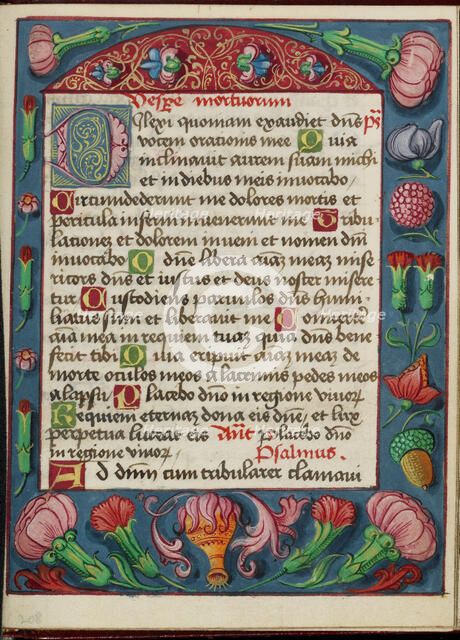 Vespe mortuorum
Dilexi quoniam exaudiet dns Ps
votem orationis mee Quia
inclinavit aurem suam michi
et in diebus meis invocabo
Circumdederunt me dolores mortis et
pericula inferni invenerunt me Tribu
lationez et dolorem inveni et nomen dni
invocabo O dne libera aiaz meaz mise
ricors dns et iustus et deus noster misere
tur Custodiens parvulos dns humi
liatus sum et liberavit me Convertere
aia mea in requiem tuaz quia dns bene
fecit tibi Quia eripuit aiaz meaz de
morte oculos meos a lacrimis pedes meos
a lapsu Placebo dno in regione vivor
Requiem eternaz dona eis dne et lux
perpetua luceat eis Ant Placebo dno
in regione vivor Psalmus.
Ad dnm cum tribularer clamavi
208
Heritage